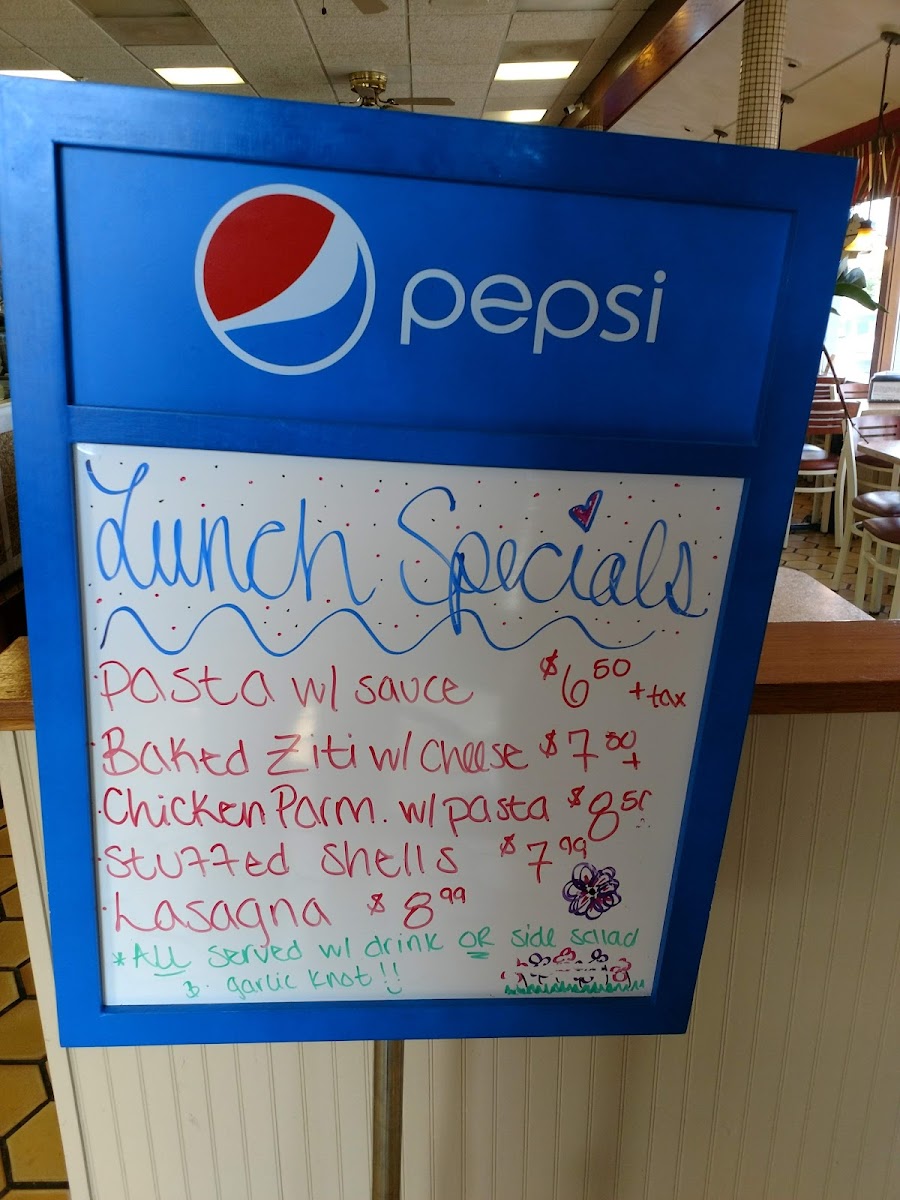 pepsi
Lunch Specials
Pasta w/ sauce $6.50 + tax
Baked Ziti w/ Cheese $7.50 +
Chicken Parm. w/ pasta $8.50
Stuffed Shells $7.99
Lasagna $8.99
*ALL served w/ drink OR side salad
& garlic knot!!